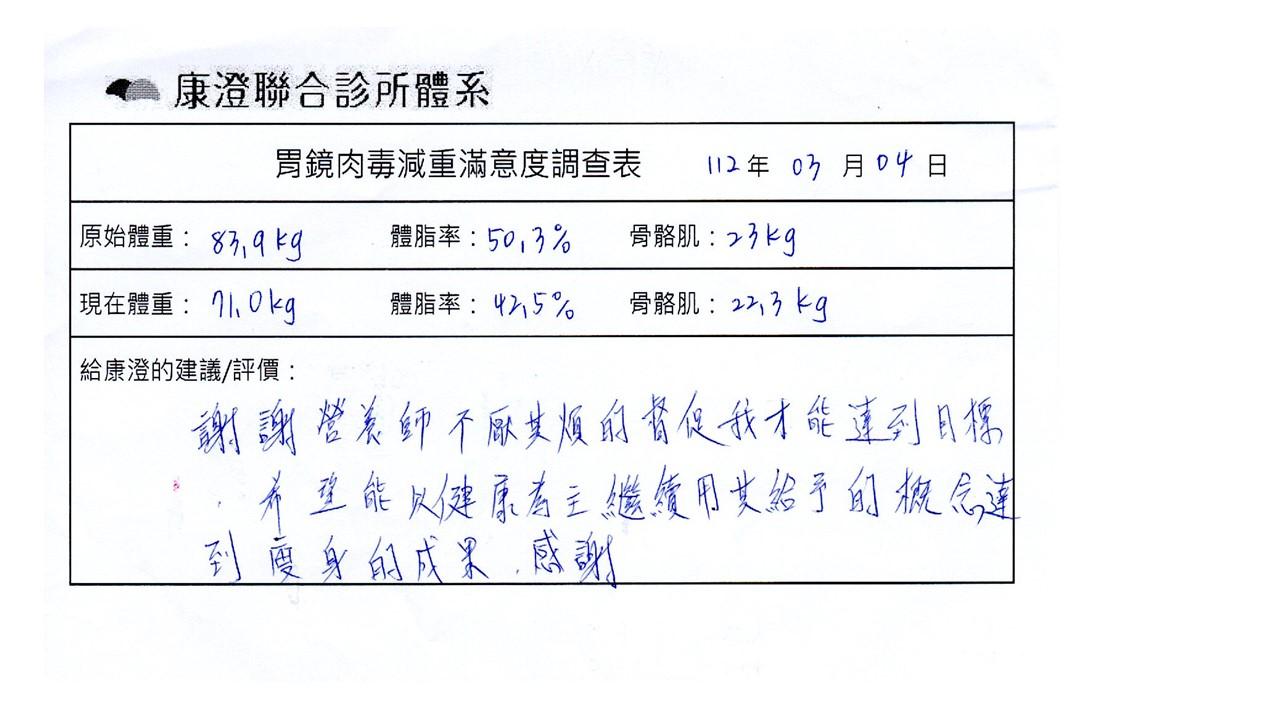 康澄聯合診所體系
胃鏡肉毒減重滿意度調查表 112年 03 月 04 日
原始體重： 83.9kg 體脂率：50.3% 骨骼肌：23kg
現在體重： 71.0kg 體脂率： 42.5% 骨骼肌： 22.3kg
給康澄的建議/評價：
謝謝營養師不厭其煩的督促我才能達到目標
，希望能以健康為主繼續用其給予的概念達
到瘦身的成果，感謝